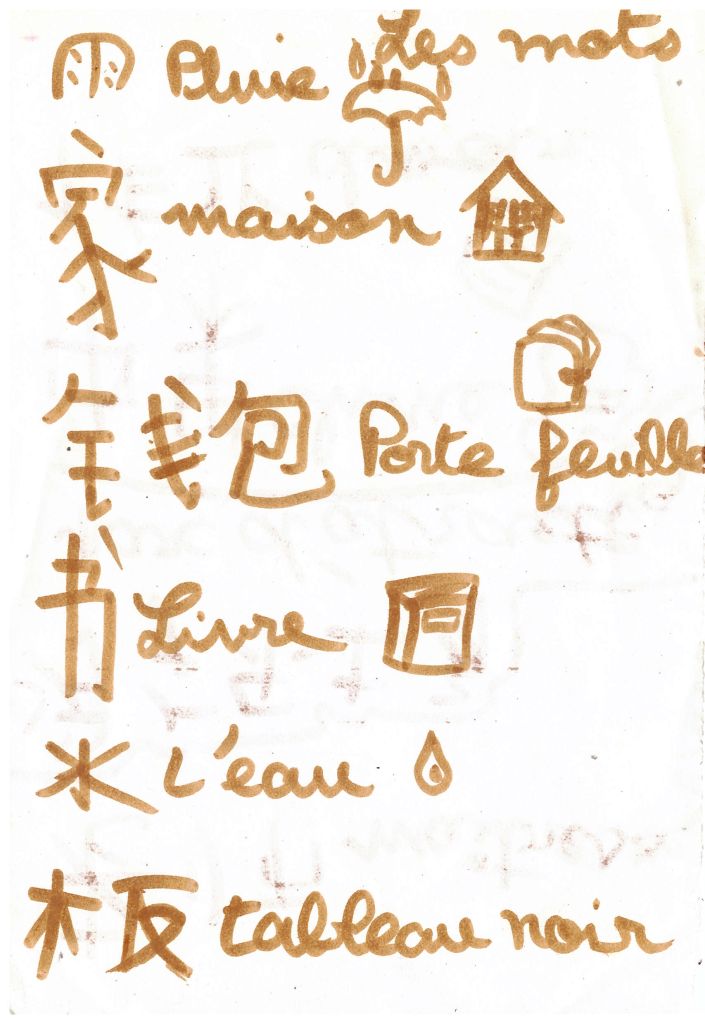 Les mots
雨 Pluie
家 maison
钱包 Porte feuille
书 Livre
水 L'eau
板 tableau noir